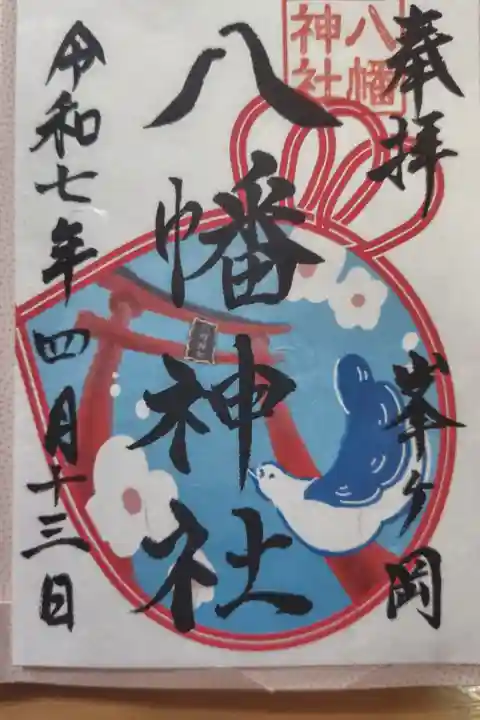 奉拝
峯ヶ岡
八幡
神社
八幡神社
令和七年四月十三日